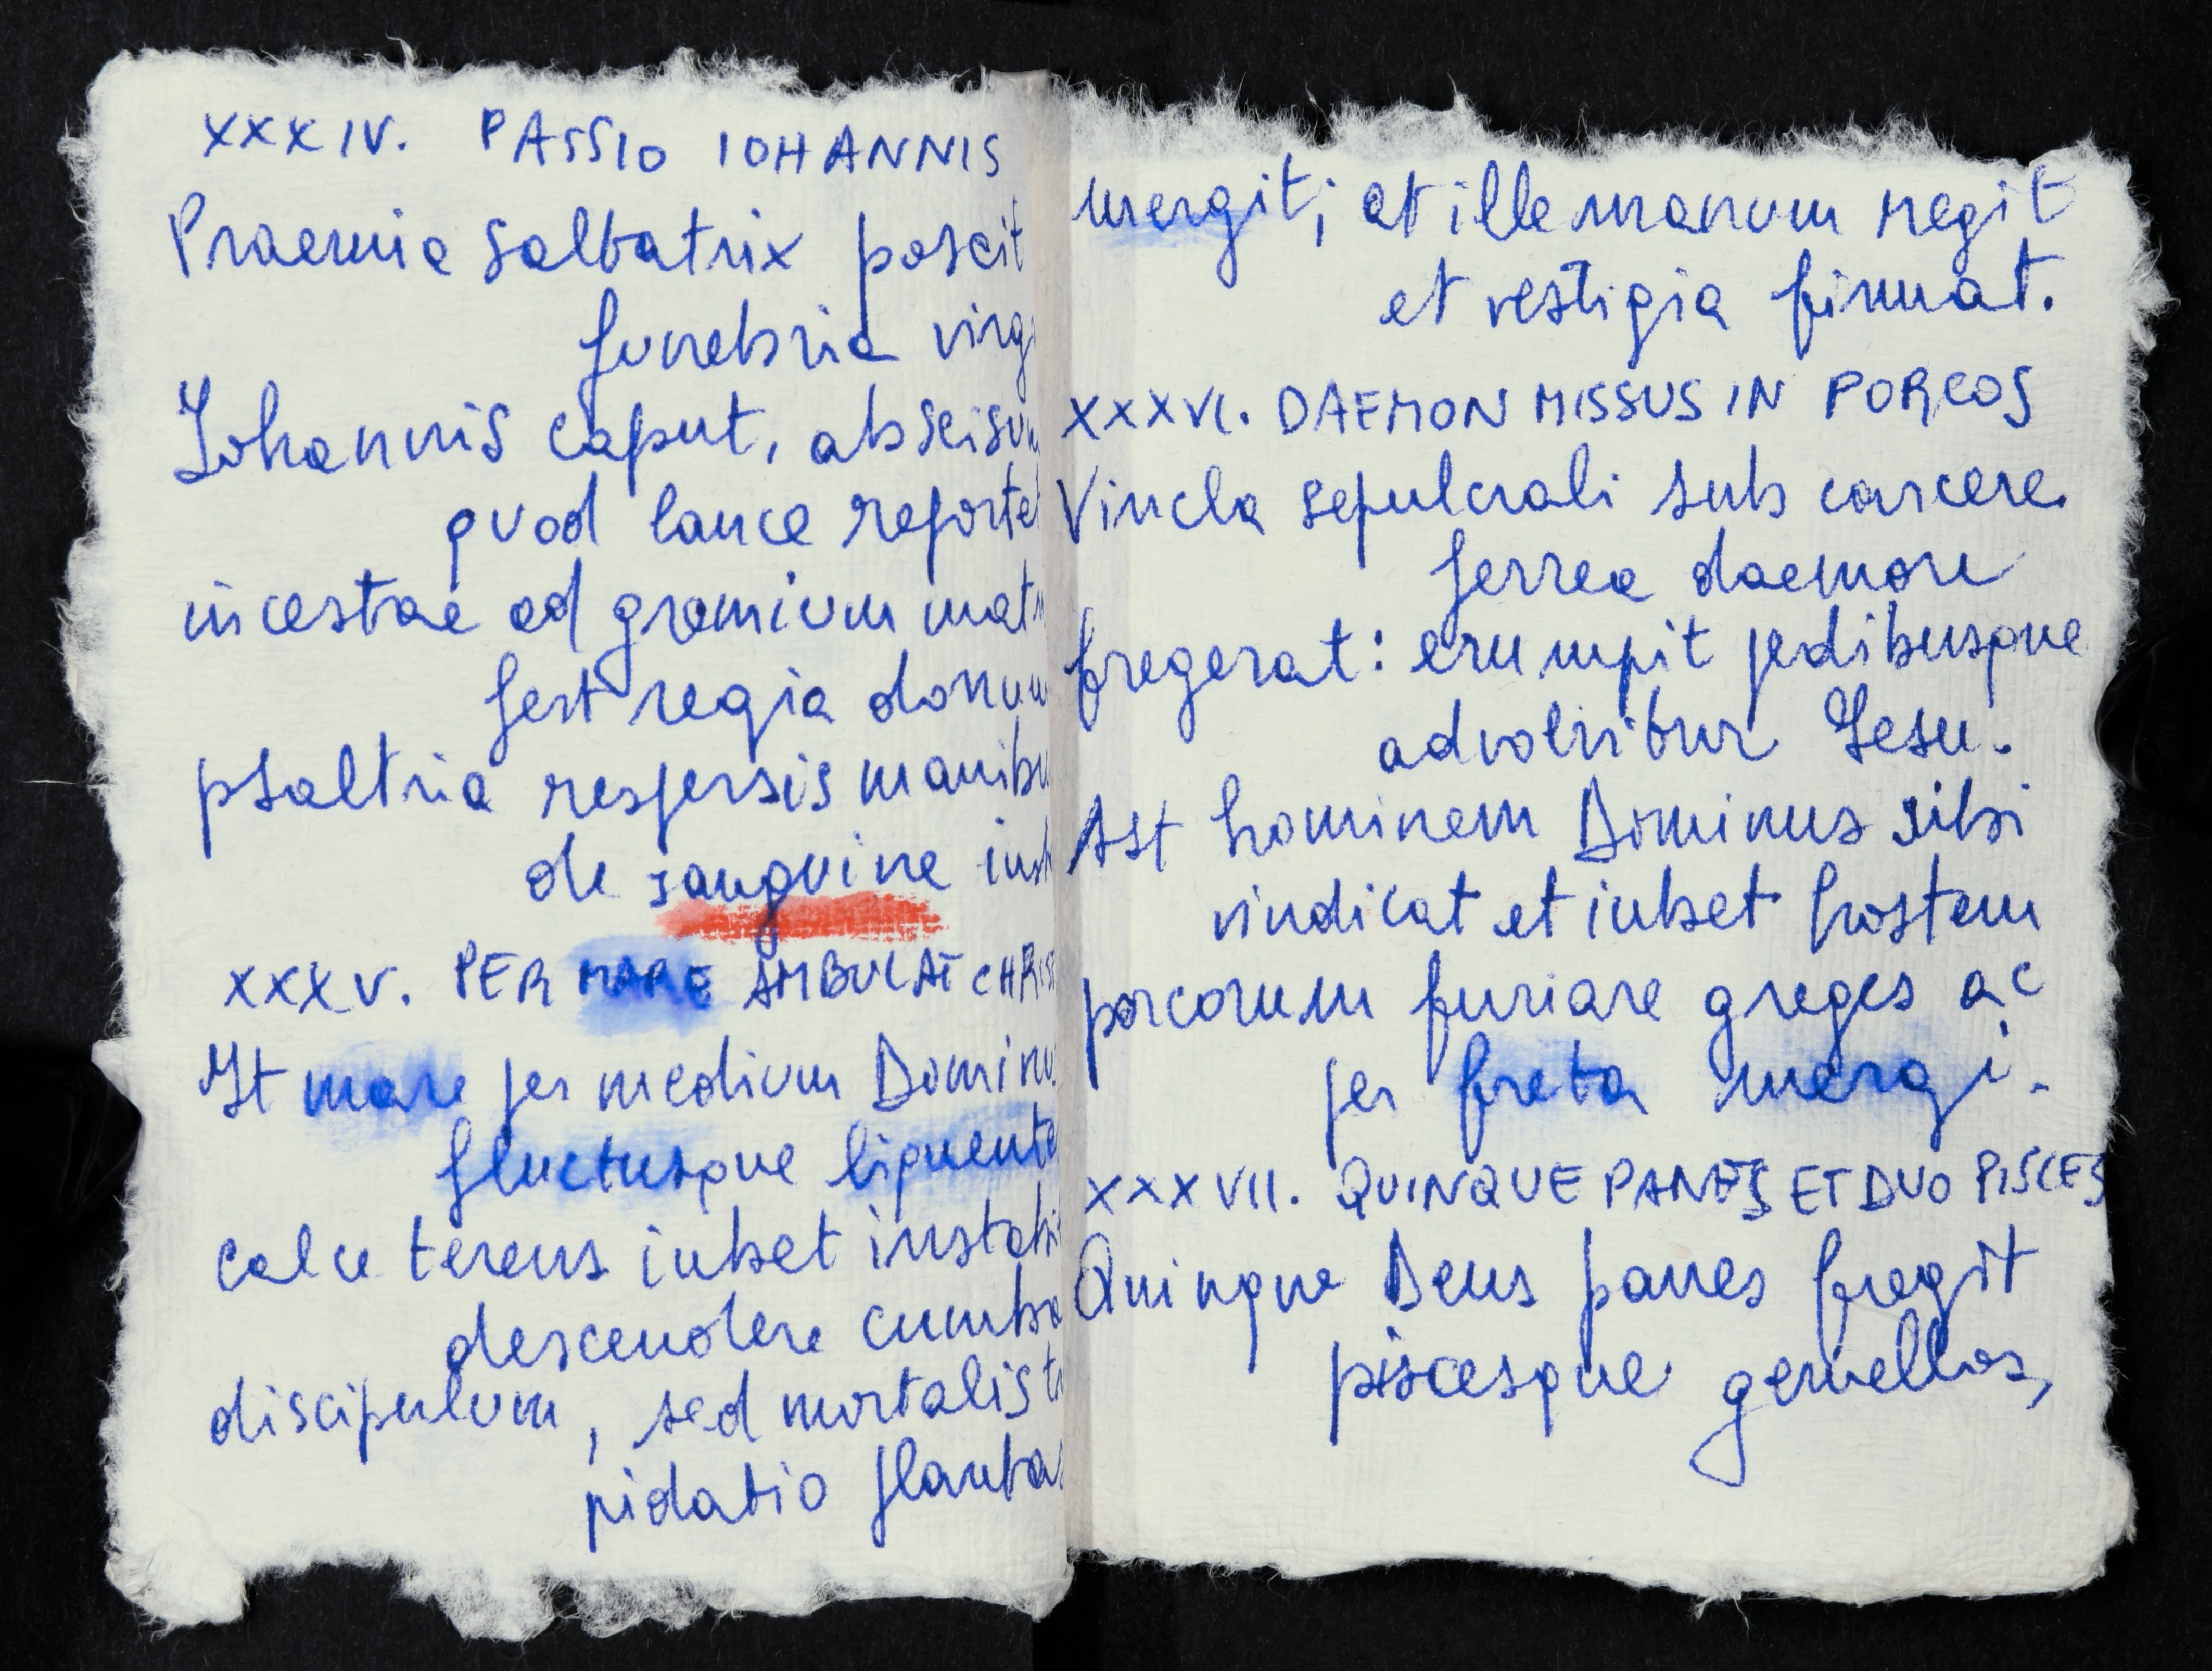 XXXIV. PASSIO IOHANNIS
Praemia saltatrix poscit
funebria virgo
Iohannis caput, abscisum
quod lance reportet
incestae ad gremium matr
fert regia donum
psaltria respersis manibu
de sanguine iust
XXXV. PER MARE AMBULAT CHRIST
It mare per medium Dominu
fluctusque liquente
calce terens iubet instabi
descendere cumba
discipulum, sed mortalis tr
pidatio plantas
mergit; et ille manum regit
et vestigia firmat.
XXXVI. DAEMON MISSUS IN PORCOS
Vincla sepulcrali sub carcere
ferrea daemon
fregerat: erumpit pedibusque
advolvitur Iesu.
Ast hominem Dominus sibi
vindicat et iubet hostem
porcorum furiare greges ac
per freta mergi.
XXXVII. QUINQUE PANES ET DUO PISCES
Quinque Deus panes fregit
piscesque gemellos,